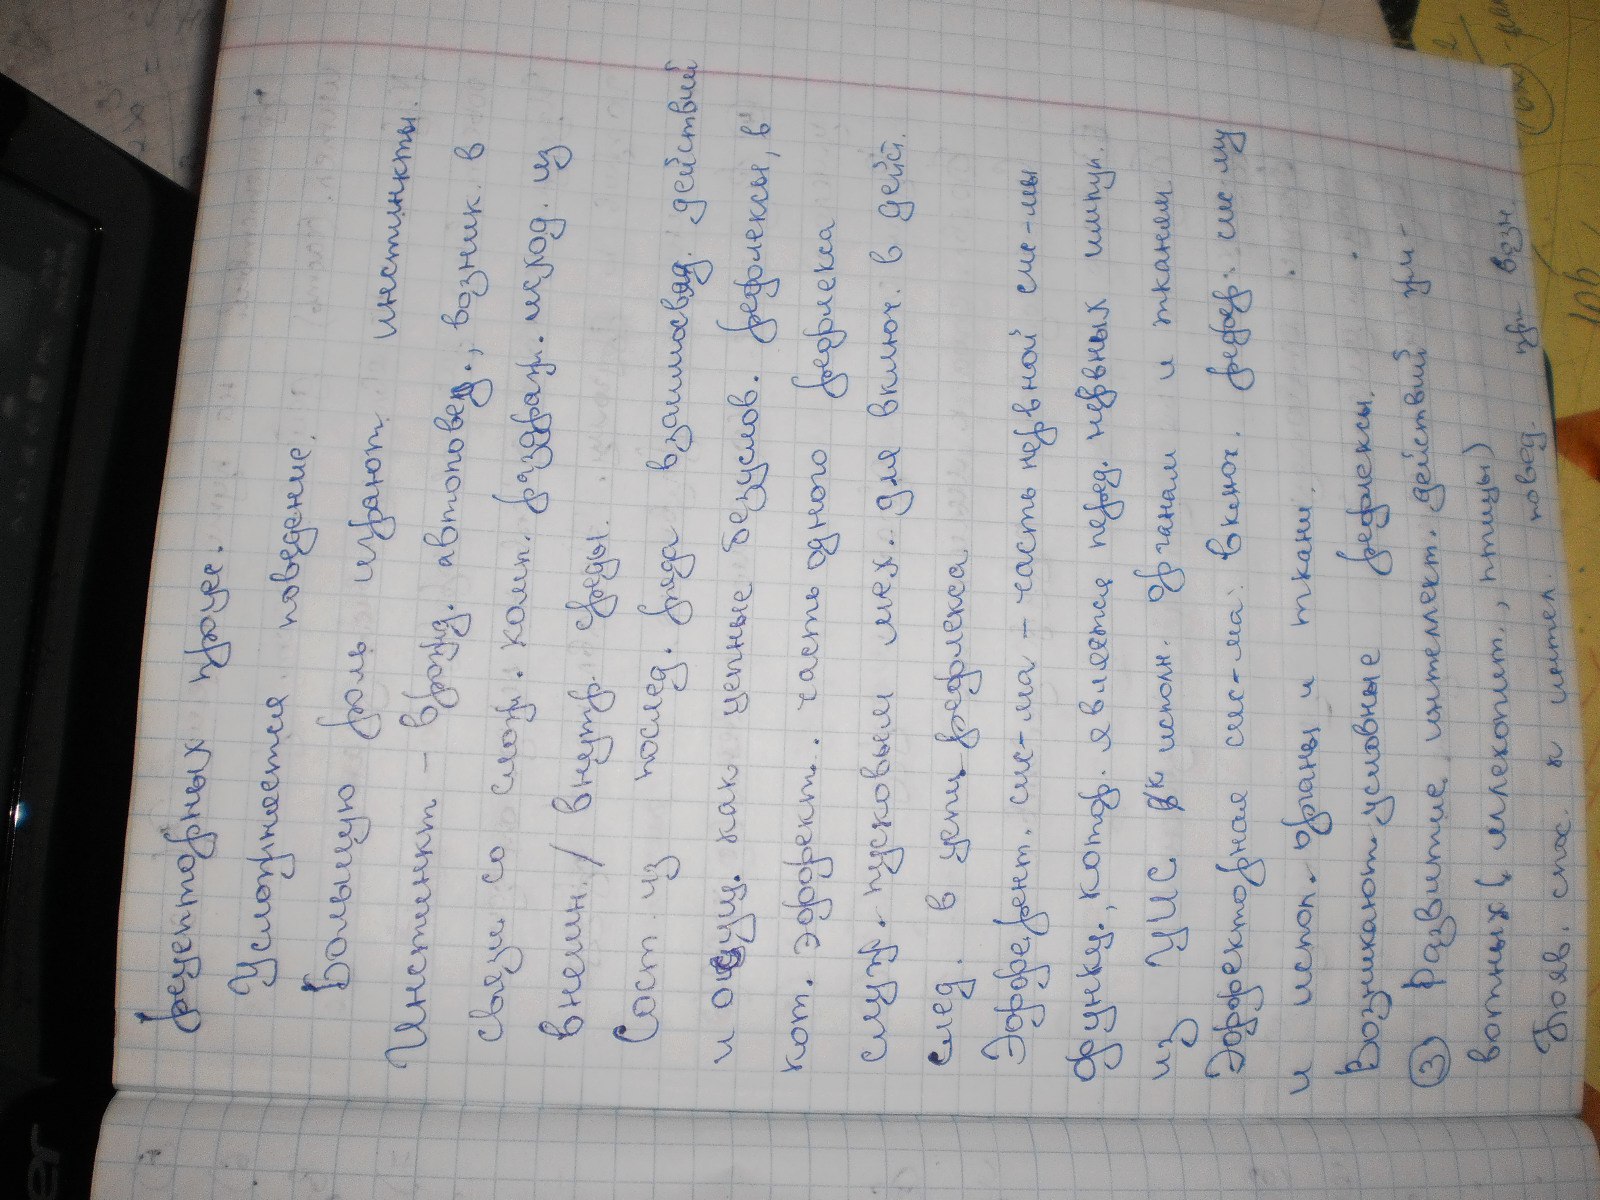 рецепторных процес.
Усложняется поведение.
Большую роль играют инстинкты.
Инстинкт - врожд. автоповед., возник. в
связи со слож. комп. раздраж. исход. из
внешн./ внутр. среды.
Сост из послед. ряда взаимосвяз. действий
и осущ. как цепные безуслов. рефлексы, в
кот. эффект. часть одного рефлекса
служ. пусковым мех. для включ. в дейст.
след. в цепи рефлекса.
Эфферент. сис-ма - часть нервной сис-мы
функц., котор. является перед. нервных импул.
из ЦНС к исполн. органам и тканям.
Эффекторная сис-ма: включ. рефер. сис-му
и испол. органы и ткани.
Возникают условные рефлексы.
③ Развитие интеллект. действий жи-
вотных (млекопит., птицы)
Появ. спос. к интел. повед. при возн.